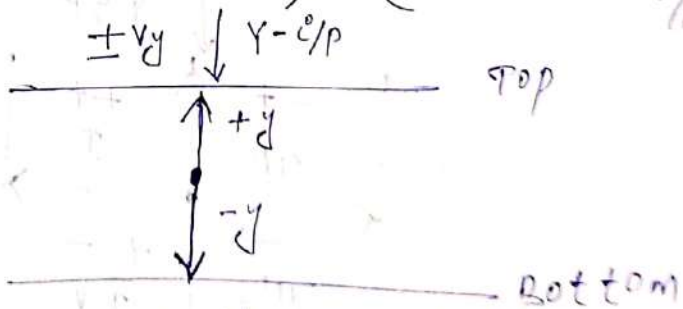 ±Vy Y-i/p
TOP
+y
-y
Bottom